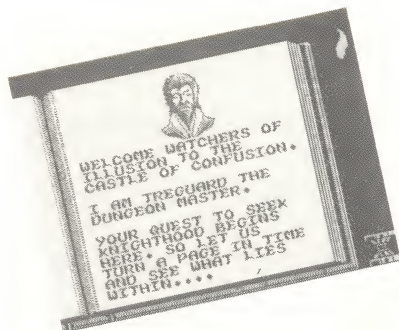 WELCOME WATCHERS OF
ILLUSION TO THE
CASTLE OF CONFUSION.
I AM TREGUARD THE
DUNGEON MASTER.
YOUR QUEST TO SEEK
KNIGHTHOOD BEGINS
HERE. SO LET US
TURN A PAGE IN TIME
AND SEE WHAT LIES
WITHIN....